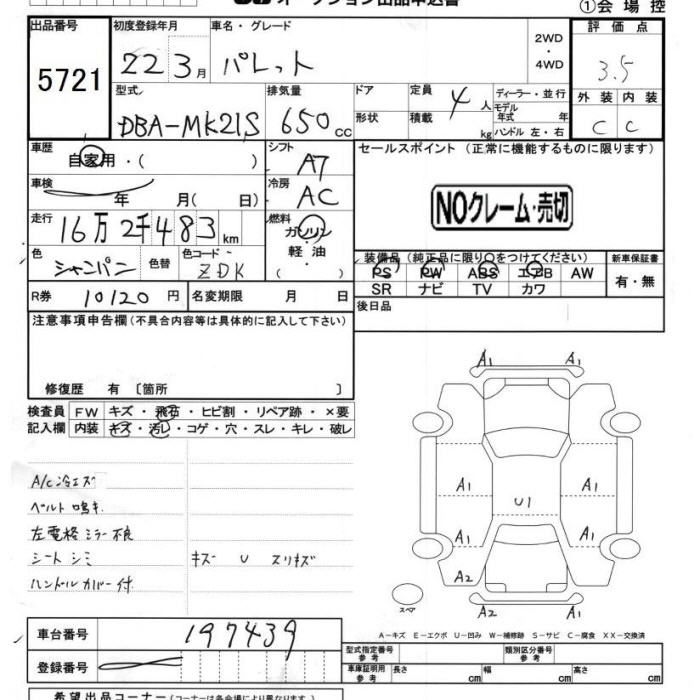 オークション出品申込書 ①会場控
出品番号 初度登録年月 車名・グレード 2WD・4WD 評価点
5721 22 3月 パレット 3.5
型式 排気量 ドア 定員 ディーラー・並行 外装 内装
DBA-MK21S 650cc 形状 積載 4人 kg モデル年式 年 ハンドル 左・右 C C
車歴 シフト セールスポイント(正常に機能するものに限ります)
自家用・( ) A7
車検 年 月(日) 冷房 AC
NOクレーム・売切
走行 16万2千483km 燃料 ガソリン 軽油 ( )
色 シャンパン 色替 色コード ZDK
装備品(純正品に限り○をつけてください) 新車保証書
PS PW ABS エアB AW 有・無
SR ナビ TV カワ
R券 10120円 名変期限 月 日 後日品
注意事項申告欄(不具合内容等は具体的に記入して下さい)
修復歴 有 〔箇所 〕
検査員 FW キズ・飛石・ヒビ割・リペア跡・×要
記入欄 内装 キズ・汚レ・コゲ・穴・スレ・キレ・破レ
A/C冷エズ
ベルト鳴キ
左電格ミラー不良
シートシミ キズ U スリキズ
ハンドルカバー付
A1 A1
A1 A1
U1
A1 A1
A2 A1
スペア
A2 A1
A-キズ E-エクボ U-凹み W-補修跡 S-サビ C-腐食 XX-交換済
車台番号 197439
登録番号
型式指定番号 参考 類別区分番号 参考
車庫証明用 参考 長さ cm 幅 cm 高さ cm
希望出品コーナー(コーナーは各会場により異なります。)